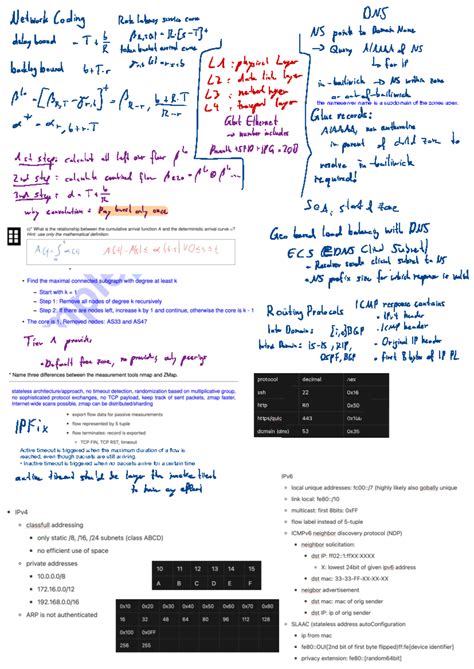 Network Coding
delay bound = T + b/R
backlog bound b + r·T
Rate latency service curve
token bucket arrival curve
L1: physical Layer
L2: data link Layer
L3: network layer
L4: transport layer
Gbit Ethernet
→ number includes
Preamble + SFD + IPG = 20B
1st step: calculate all left over flow
2nd step: calculate combined flow
3rd step: d = T + b/R
why convolution = Pay burst only once
c) What is the relationship between the cumulative arrival function A and the deterministic arrival curve
Hint: use only the mathematical definition.
• Find the maximal connected subgraph with degree at least k
– Start with k = 1
– Step 1: Remove all nodes of degree k recursively
– Step 2: If there are nodes left, increase k by 1 and continue, otherwise the core is k - 1
• The core is 1. Removed nodes: AS33 and AS47
Tier 1 provider
- Default free zone, no provider, only peering
* Name three differences between the measurement tools nmap and ZMap.
stateless architecture/approach, no timeout detection, randomization based on multiplicative group,
no sophisticated protocol exchanges, no TCP payload, keep track of sent packets, zmap faster,
internet-wide scans possible, zmap can be distributed/sharding
IPFix
• export flow data for passive measurements
• flow represented by 5 tuple
• flow terminates: record is exported
◦ TCP FIN, TCP RST, timeout
Active timeout is triggered when the maximum duration of a flow is
reached, even though packets are still arriving.
• Inactive timeout is triggered when no packets arrive for a certain time
active timeout should be larger than inactive timeout
to have any effect
DNS
NS points to Domain Name
→ Query A/AAAA of NS
↳ for IP
in-bailiwick → NS within zone
or out-of-bailiwick
the nameserver name is a subdomain of the zones apex.
Glue records:
A/AAAA, not authoritative
in parent of child zone to
resolve in-bailiwick
required!
SOA, start of zone
Geo based load balancing with DNS
ECS (EDNS Client Subnet)
- Resolver sends client subnet to NS
- NS prefix size for which response is valid
Routing Protocols
Inter Domain: {i,e}BGP
Intra Domain: IS-IS, RIP,
OSPF, BGP
ICMP response contains
• IPv4 header
• ICMP header
• Original IP header
• first 8 bytes of IP PL
protocol decimal hex
ssh 22 0x16
http 80 0x50
https/quic 443 0x1bb
domain (dns) 53 0x35
• IPv4
◦ classfull addressing
▪ only static /8, /16, /24 subnets (class ABCD)
▪ no efficient use of space
◦ private addresses
▪ 10.0.0.0/8
▪ 172.16.0.0/12
▪ 192.168.0.0/16
◦ ARP is not authenticated
10 11 12 13 14 15
A B C D E F
0x10 0x20 0x30 0x40 0x50 0x60 0x70 0x80 0x90 0xa0
16 32 48 64 80 96 112 128 144 160
0x100 0xff
256 255
IPv6
◦ local unique addresses: fc00::/7 (highly likely also gobally unique)
◦ link local: fe80::/10
◦ multicast: first 8bits: 0xFF
◦ flow label instead of 5-tuple
◦ ICMPv6 neighbor discovery protocol (NDP)
▪ neighbor solicitation:
▪ dst IP: ff02::1:ffXX:XXXX
▪ X: lowest 24bit of given ipv6 address
▪ dst mac: 33-33-FF-XX-XX-XX
▪ neigbor advertisement
▪ dst mac: mac of orig sender
▪ dst IP: ip of orig sender
◦ SLAAC (stateless address autoConfiguration
▪ ip from mac
▪ fe80::OUI[2nd bit of first byte flipped]ff:fe[device identifier]
▪ privacy extension: fe80::[random64bit]